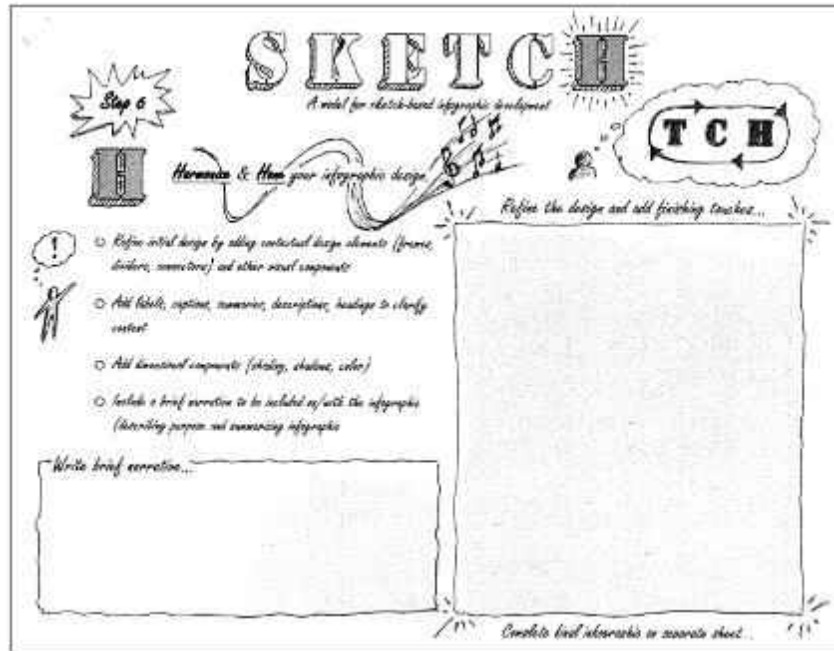 SKETCH
A model for sketch-based infographic development
Step 6
TCH
H
Harmonize & Hone your infographic design
Refine the design and add finishing touches...
!
Refine initial design by adding contextual design elements (frames,
dividers, connectors) and other visual components
Add labels, captions, summaries, descriptions, headings to clarify
content
Add dimensional components (shading, shadows, color)
Include a brief narration to be included on/with the infographic
(describing purpose and summarizing infographic
Write brief narration...
Complete final infographic on separate sheet...